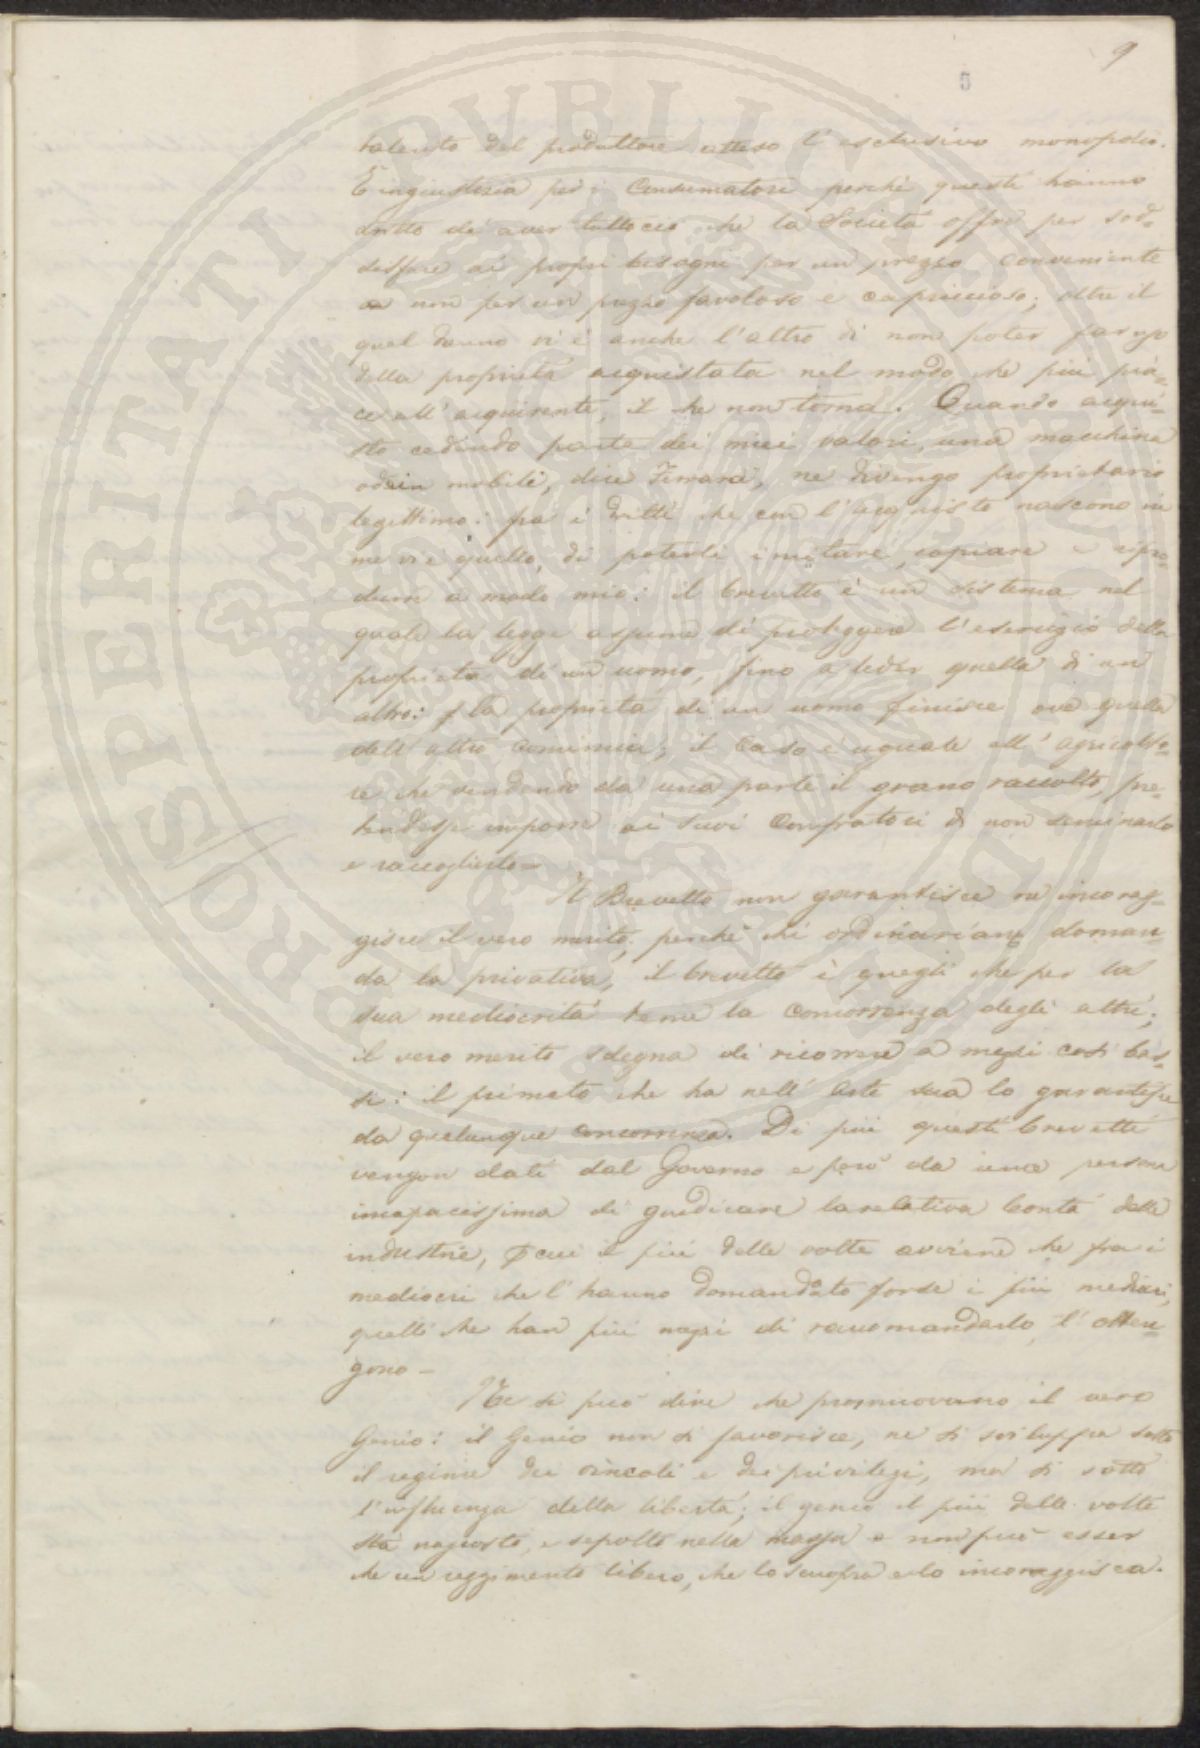 9
5
talento del produttore atteso l'esclusivo monopolio.
È ingiustizia per i Consumatori perché questi hanno
dritto di aver tuttociò che la Società offre per sod-
disfare ai propri bisogni per un prezzo conveniente
e non per un prezzo favoloso e capriccioso; oltre il
qual danno vi è anche l'altro di non poter far uso
della proprietà acquistata nel modo che più pia-
ce all'acquirente, il che non torna. Quando acqui-
sto cedendo parte dei miei valori, una macchina
od un mobile, dice Ferrara, ne divengo proprietario
legittimo: fra i dritti che con l'acquisto nascono in
me vi è quello, di poterli imitare, copiare e ripro-
durre a modo mio: il brevetto è un sistema nel
quale la legge aspira di proteggere l'esercizio della
proprietà di un uomo, fino a leder quella di un
altro: la proprietà di un uomo finisce ove quella
dell'altro comincia; il caso è uguale all'agricolto-
re che vendendo da una parte il grano raccolto, pre-
tendesse imporre ai suoi Compratori di non seminarlo
e raccoglierlo-
Il Brevetto non garantisce né incorag-
gisce il vero merito, perché chi ordinariam doman-
da la privativa, il brevetto è quegli che per la
sua mediocrità teme la concorrenza degli altri;
il vero merito sdegna di ricorrere a mezzi così bas-
si: il primato che ha nell'arte sua lo garantisce
da qualunque concorrenza. Di più questi brevetti
vengon dati dal Governo e però da una persona
incapacissima di giudicare la relativa bontà delle
industrie, cui il più delle volte avviene che fra i
mediocri che l'hanno domandato forse i più mediocri,
quelli che han più mezzi di raccomandarlo l'otten-
gono-
Né si può dire che promuovano il vero
Genio: il Genio non si favorisce, né si sviluppa sotto
il regime dei vincoli e dei privilegi, ma si sotto
l'influenza della libertà; il genio il più delle volte
sta nascosto, e sepolto nella massa e non può esser
che un reggimento libero, che lo scuopra e lo incoraggisca.
PROSPERITATI PUBLICAE